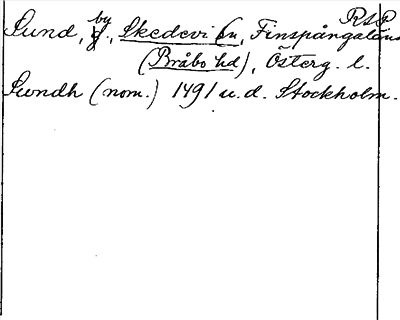 RSP
Sund, by, Skedevi sn, Finspångaläns
(Bråbo hd), Österg. l.
Sundh (nom.) 1491 u.d. Stockholm.